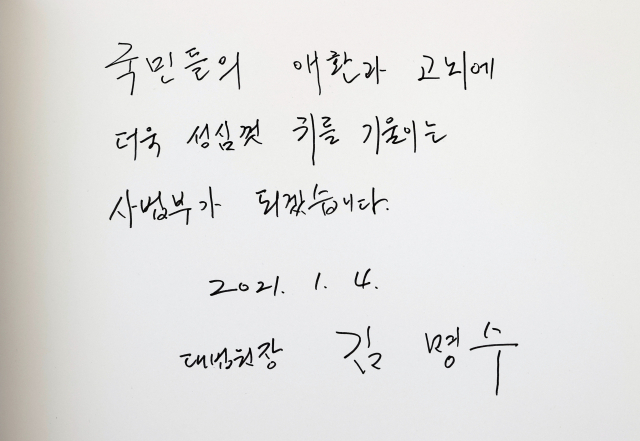 국민들의 애환과 고뇌에
더욱 성심껏 귀를 기울이는
사법부가 되겠습니다.
2021. 1. 4.
대법원장 김명수